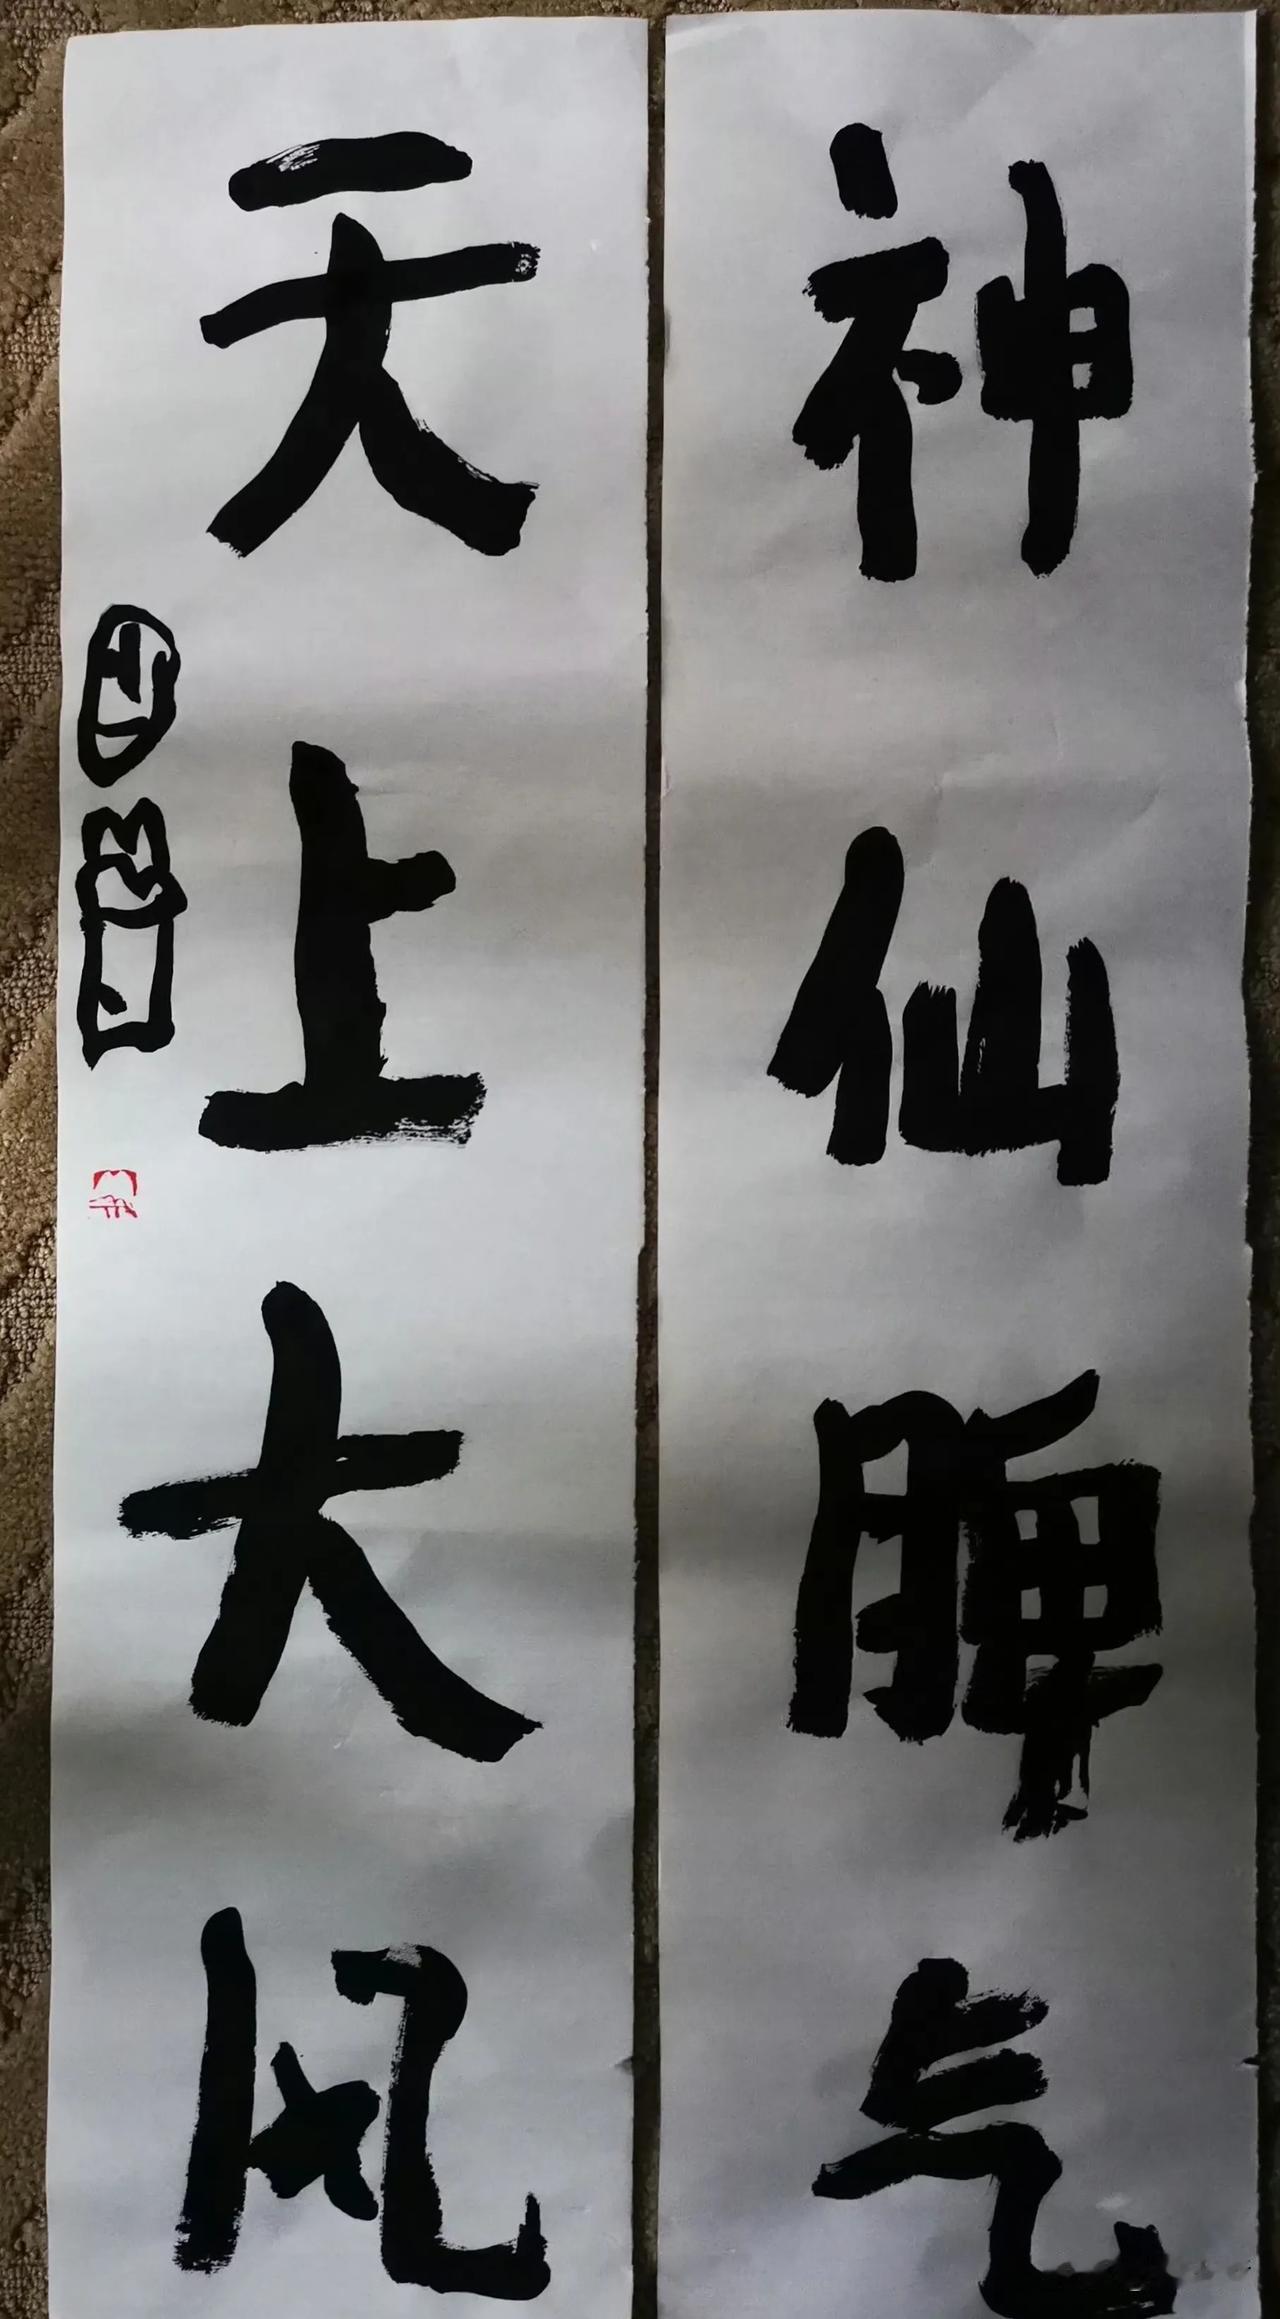 神仙脾气
天上大风